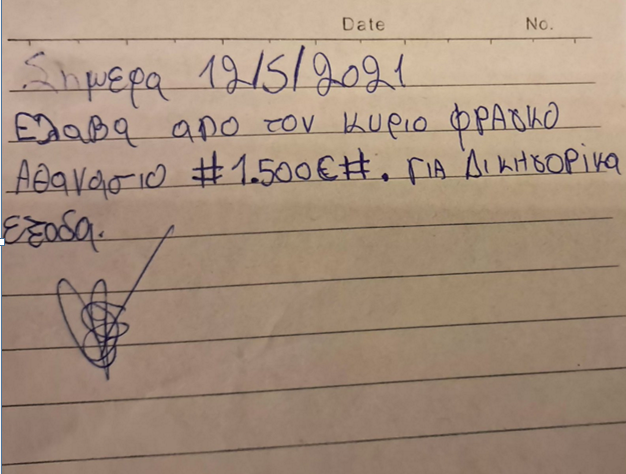 Date No.
Σημερα 12/5/2021
Ελαβα απο τον κυριο ΦΡΑΣΚΟ
Αθανασιο #1.500€#. ΓΙΑ ΔΙΚΗΓΟΡΙΚα
εξοδα.